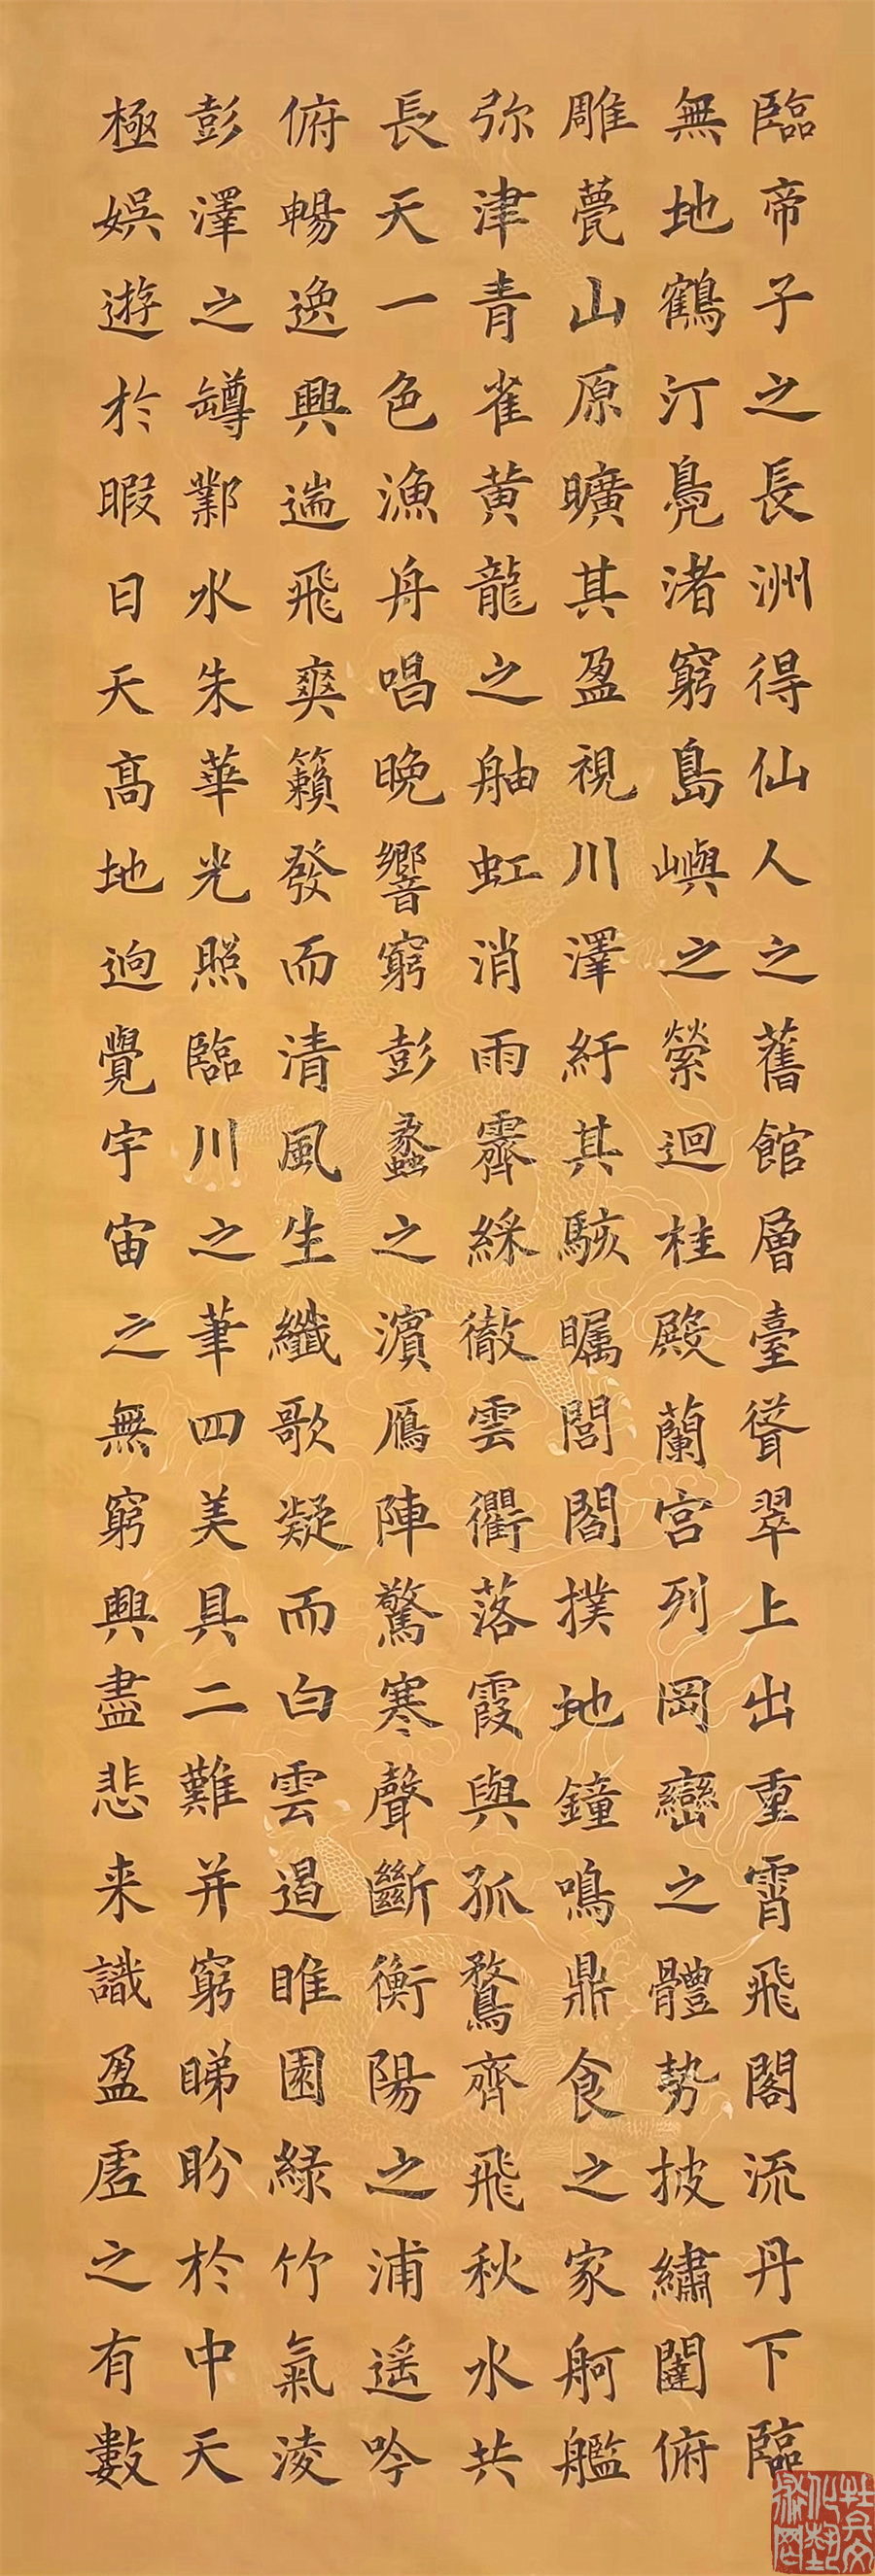 臨帝子之長洲得仙人之舊館層臺聳翠上出重霄飛閣流丹下臨
無地鶴汀鳧渚窮島嶼之縈迴桂殿蘭宮列岡巒之體勢披繡闥俯
雕甍山原曠其盈視川澤紆其駭矚閭閻撲地鐘鳴鼎食之家舸艦
弥津青雀黄龍之舳虹消雨霽綵徹雲衢落霞與孤鶩齊飛秋水共
長天一色漁舟唱晚響窮彭蠡之濱鴈陣驚寒聲斷衡陽之浦遥吟
俯暢逸興遄飛爽籟發而清風生纖歌凝而白雲遏睢園緑竹氣凌
彭澤之罇鄴水朱華光照臨川之筆四美具二難并窮睇眄於中天
極娱遊於暇日天高地逈覺宇宙之無窮興盡悲来識盈虚之有數
牡丹文化藝術網